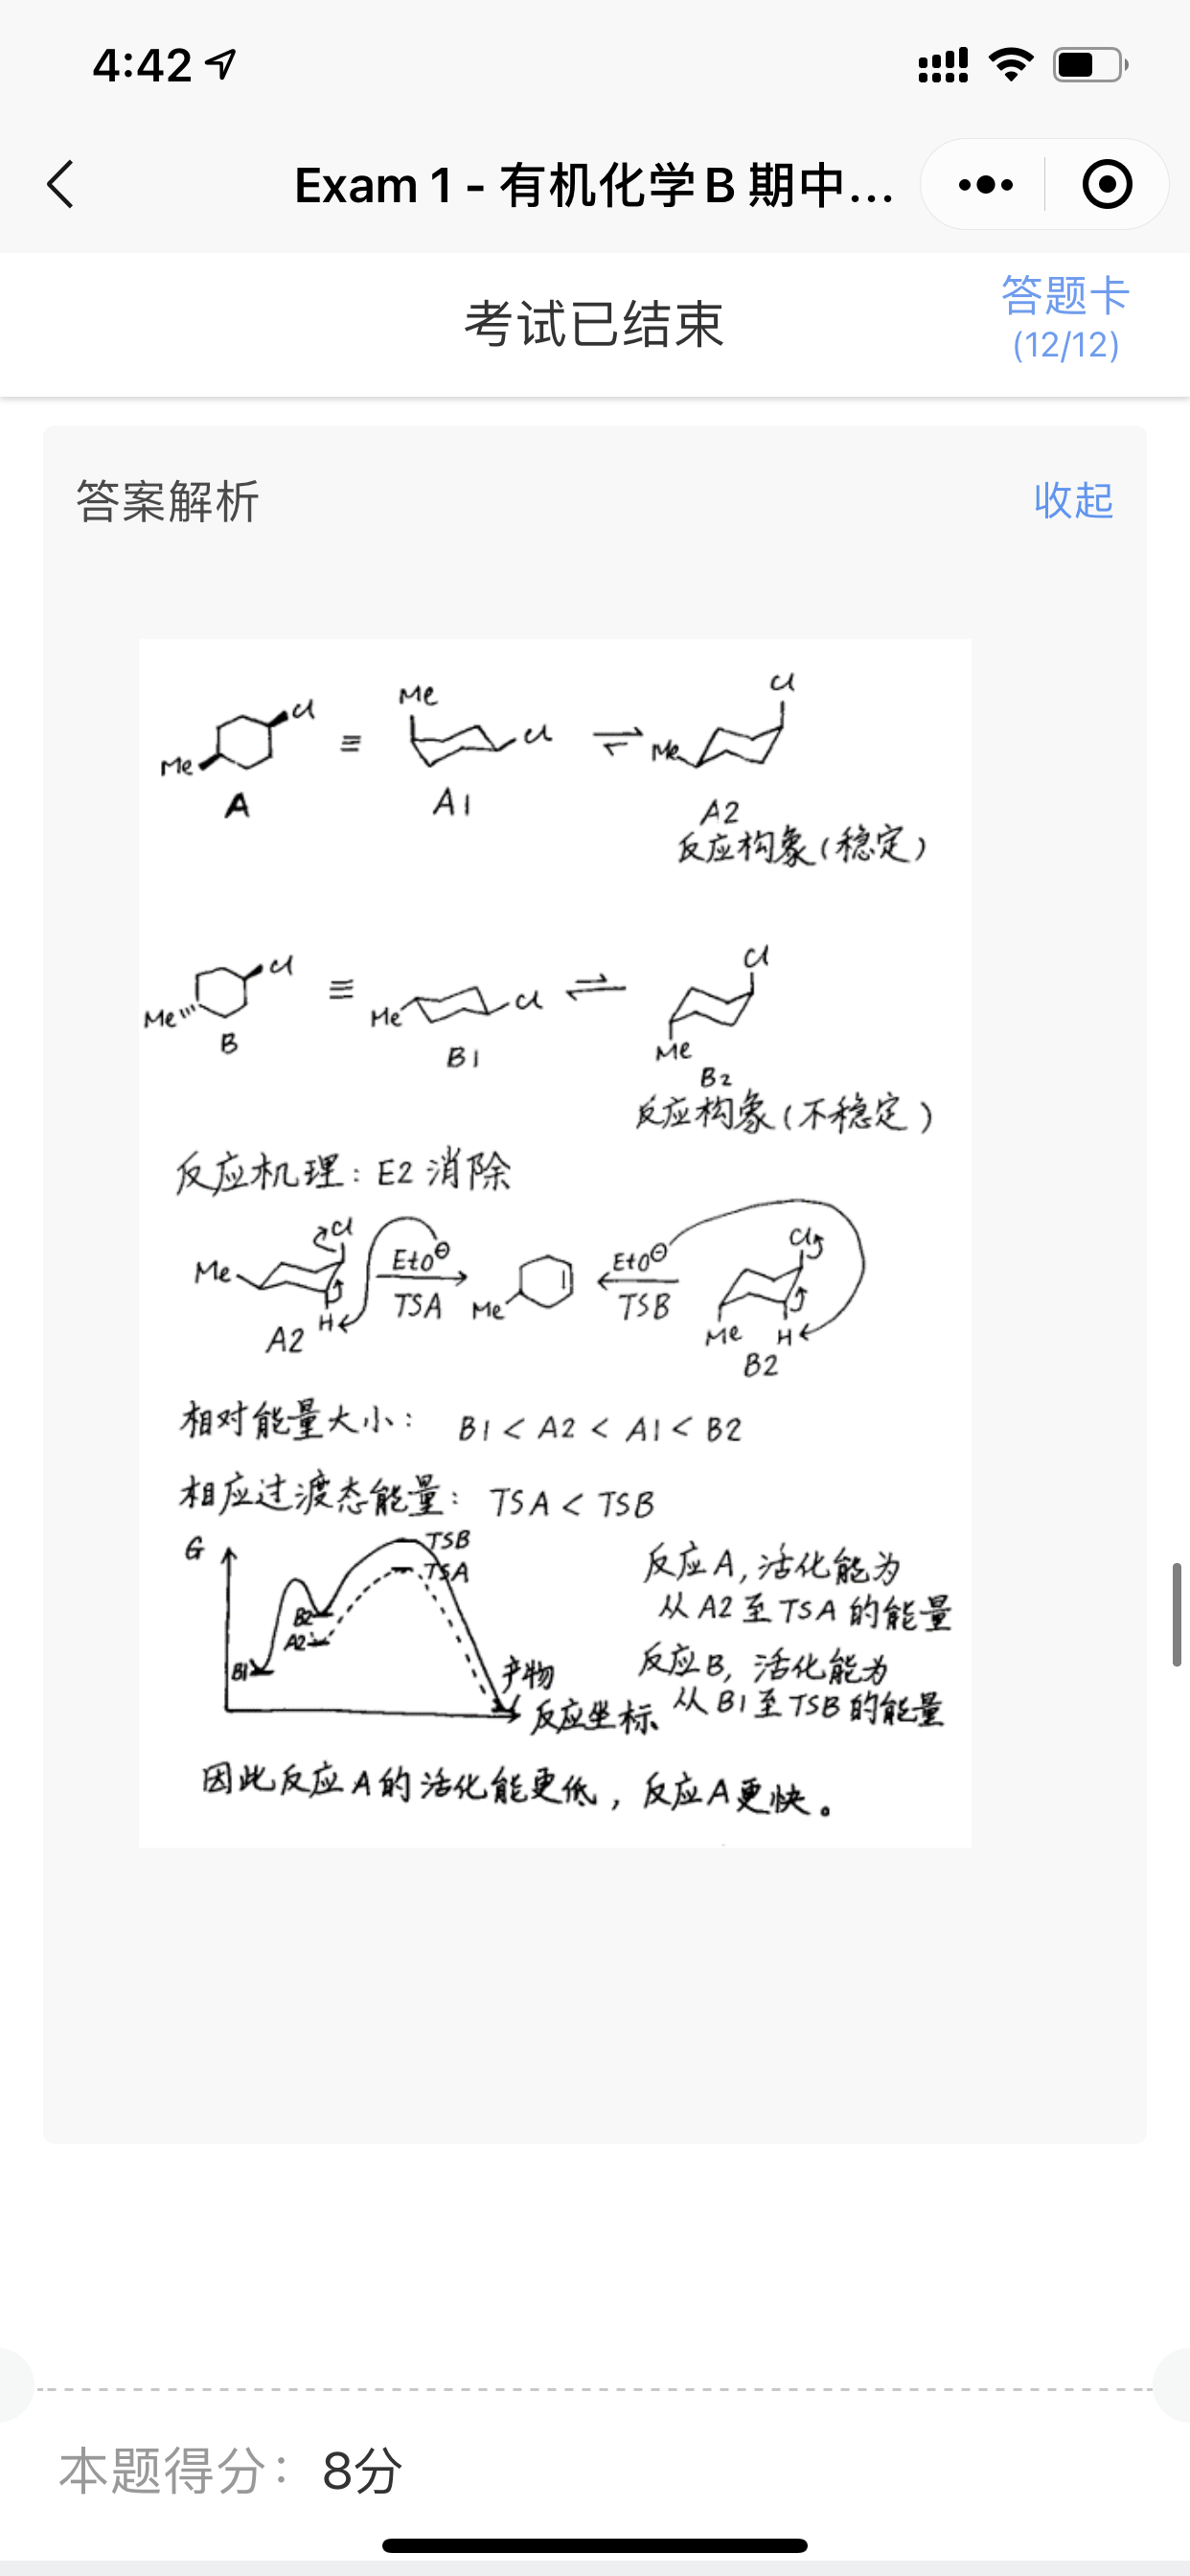 4:42
Exam 1 - 有机化学B 期中...
考试已结束
答题卡
(12/12)
答案解析
收起
Me Cl
A
≡
Me Cl
A1
⇌
Me Cl
A2
反应构象(稳定)
Me Cl
B
≡
Me Cl
B1
⇌
Cl
Me
B2
反应构象(不稳定)
反应机理: E2 消除
Me Cl
H
A2
EtO⊖
TSA
Me
EtO⊖
TSB
Cl
Me H
B2
相对能量大小: B1 < A2 < A1 < B2
相应过渡态能量: TSA < TSB
G
TSB
TSA
B2
A2
B1
产物
反应坐标
反应A, 活化能为
从 A2 至 TSA 的能量
反应B, 活化能为
从 B1 至 TSB 的能量
因此反应A的活化能更低, 反应A更快。
本题得分: 8分